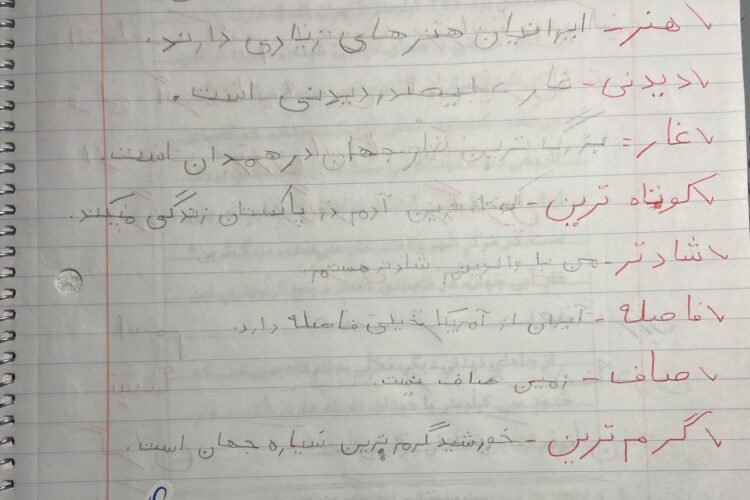 هنر - ایرانیان هنرهای زیادی دارند.
دیدنی - غار علیصدر دیدنی است.
غار = بزرگ ترین غار جهان در همدان است.
کوتاه ترین - کوتاه ترین آدم در پاکستان زندگی میکند.
شادتر - من با والدینم شادتر هستم.
فاصله - ایران از آمریکا خیلی فاصله دارد.
صاف - زمین صاف نیست.
گرم ترین - خورشید گرم ترین سیاره جهان است.